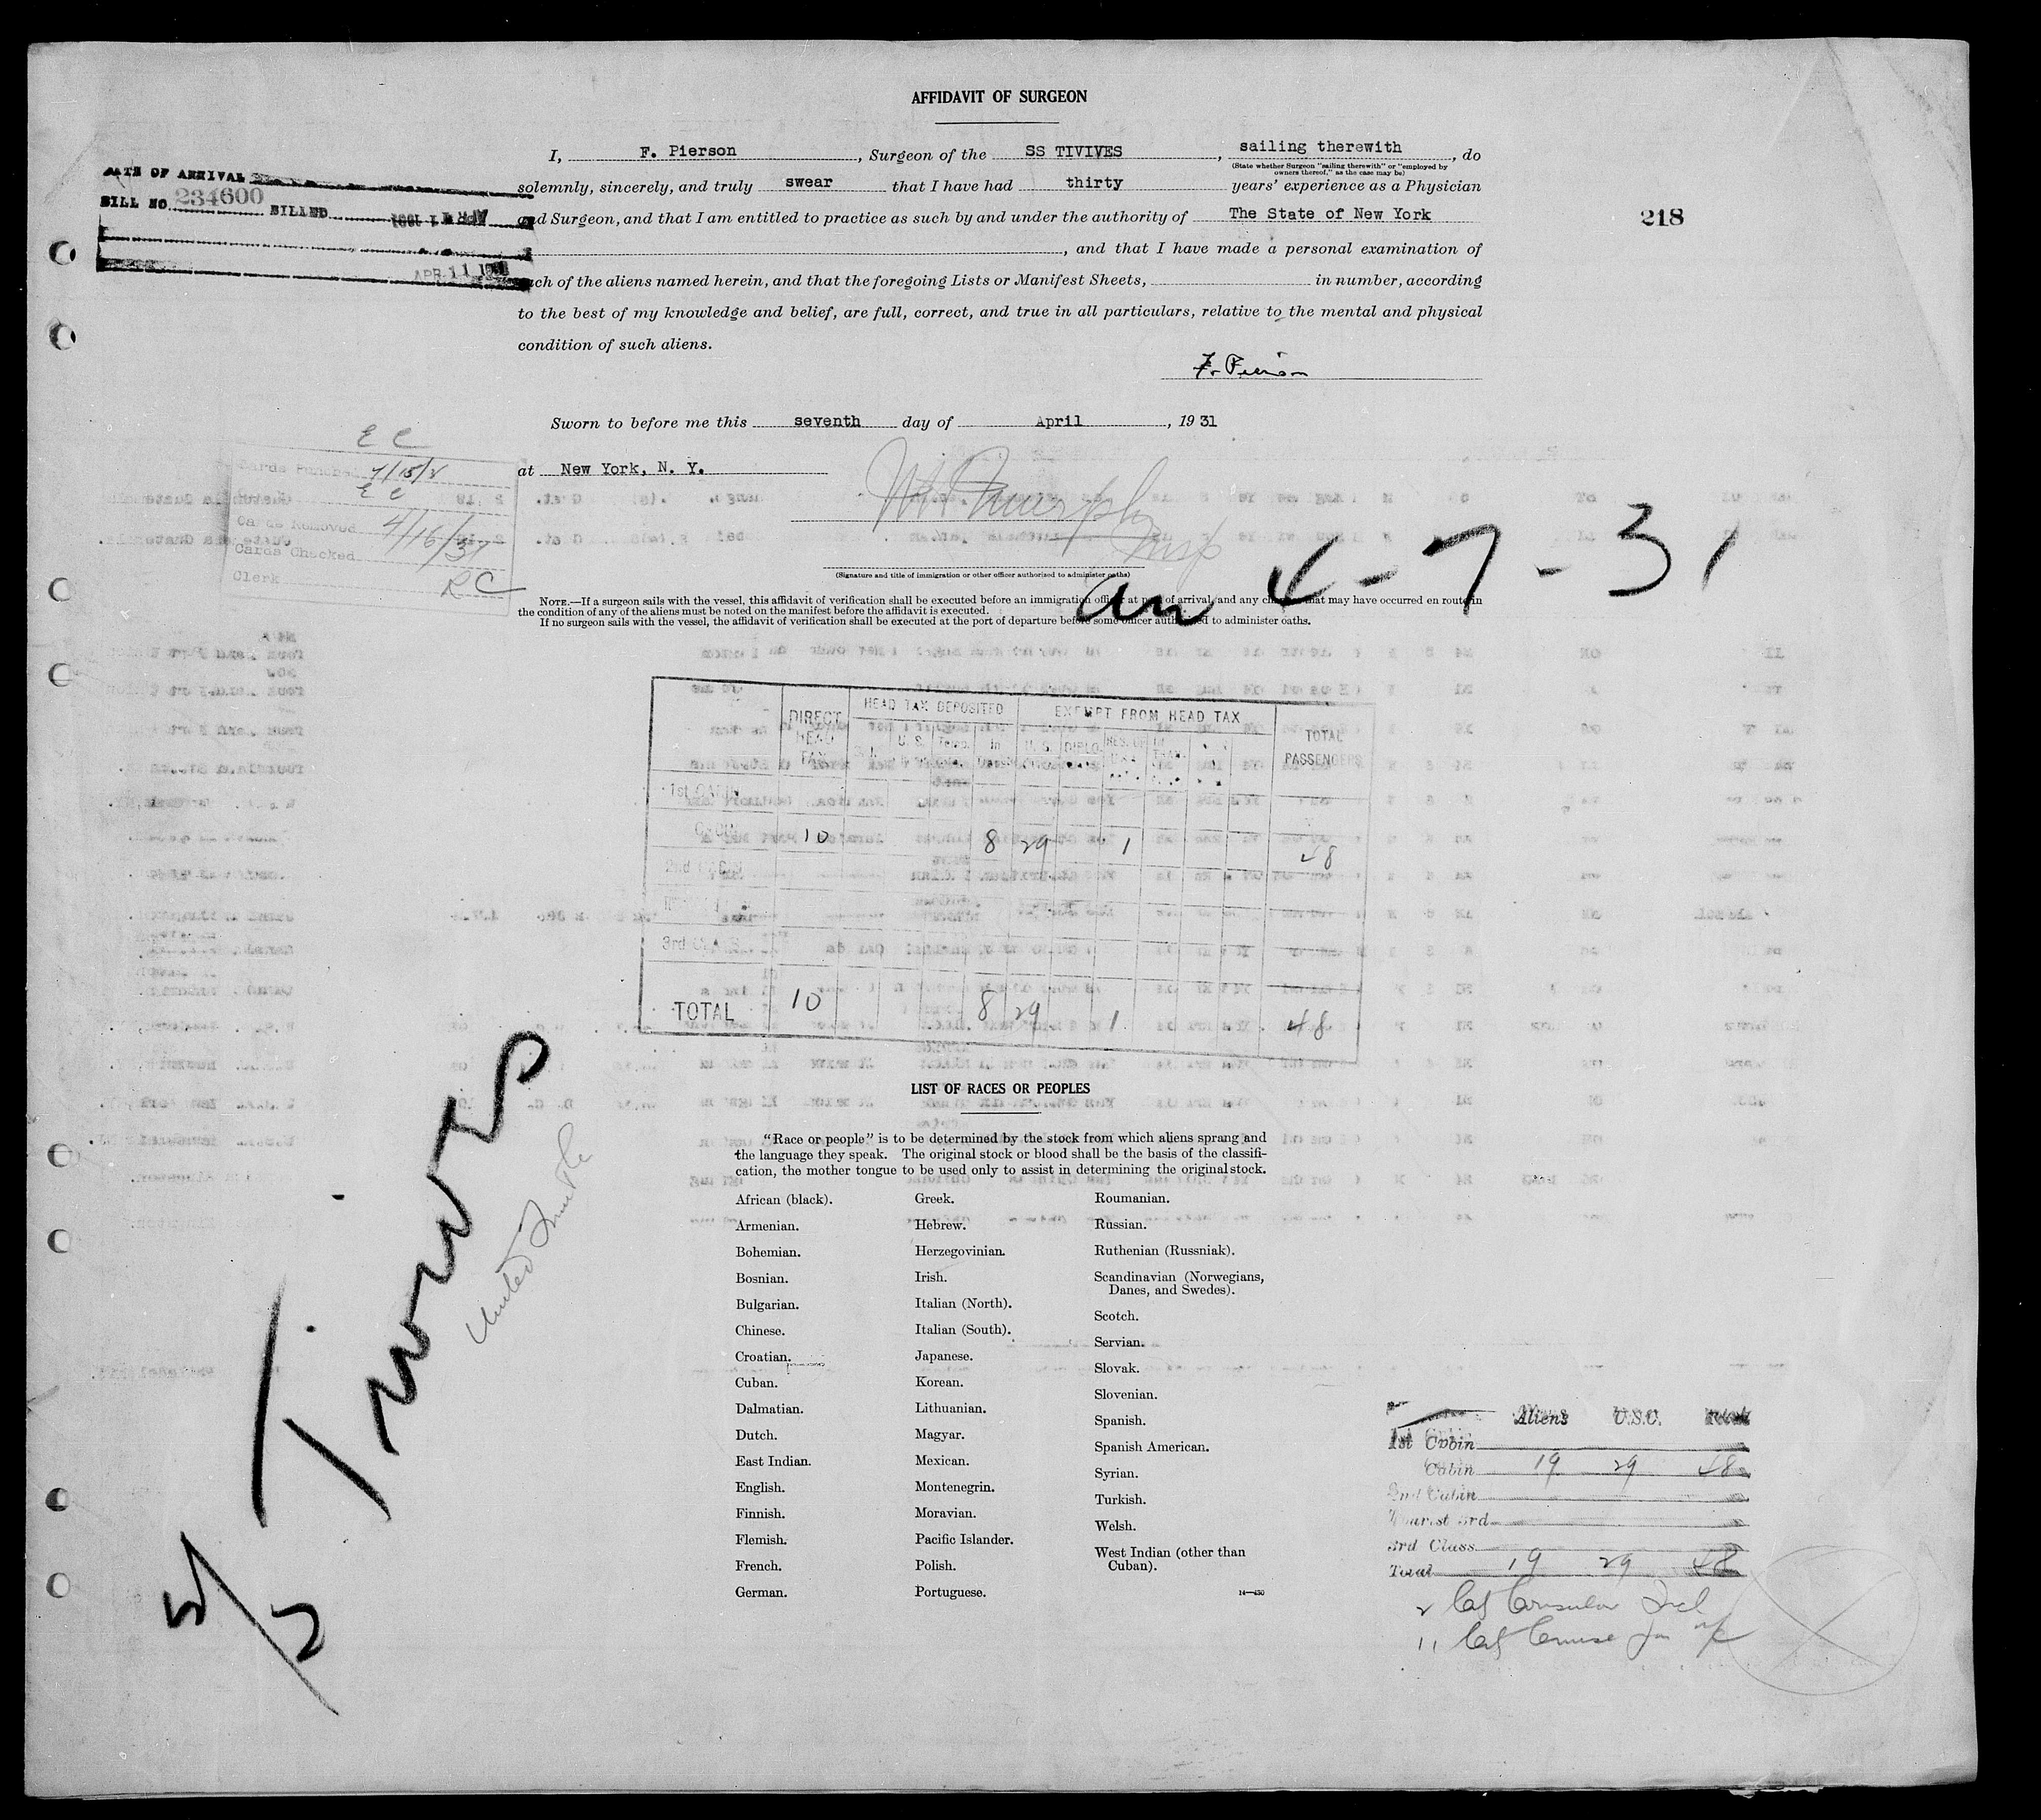 AFFIDAVIT OF SURGEON
I, F. Pierson, Surgeon of the SS TIVIVES, sailing therewith, do
(State whether Surgeon "sailing therewith" or "employed by
owners thereof," as the case may be)
solemnly, sincerely, and truly swear that I have had thirty years' experience as a Physician
and Surgeon, and that I am entitled to practice as such by and under the authority of The State of New York
, and that I have made a personal examination of
each of the aliens named herein, and that the foregoing Lists or Manifest Sheets, in number, according
to the best of my knowledge and belief, are full, correct, and true in all particulars, relative to the mental and physical
condition of such aliens.
F. Pierson
DATE OF ARRIVAL
BILL NO. 234600 BILLED APR 11 1931
APR 11 1931
218
Sworn to before me this seventh day of April, 1931
at New York, N. Y.
E C
Cards Punched 4/15/31
E C
Cards Removed 4/16/31
Cards Checked
Clerk RC
Insp
(Signature and title of immigration or other officer authorized to administer oaths)
4-7-31
NOTE.—If a surgeon sails with the vessel, this affidavit of verification shall be executed before an immigration officer at port of arrival, and any changes that may have occurred en route in
the condition of any of the aliens must be noted on the manifest before the affidavit is executed.
If no surgeon sails with the vessel, the affidavit of verification shall be executed at the port of departure before some officer authorized to administer oaths.
DIRECT HEAD TAX HEAD TAX DEPOSITED EXEMPT FROM HEAD TAX TOTAL PASSENGERS
1st CABIN
CABIN 10 8 29 1 48
2nd CABIN
3rd CLASS
TOTAL 10 8 29 1 48
LIST OF RACES OR PEOPLES
"Race or people" is to be determined by the stock from which aliens sprang and
the language they speak. The original stock or blood shall be the basis of the classifi-
cation, the mother tongue to be used only to assist in determining the original stock.
African (black).
Armenian.
Bohemian.
Bosnian.
Bulgarian.
Chinese.
Croatian.
Cuban.
Dalmatian.
Dutch.
East Indian.
English.
Finnish.
Flemish.
French.
German.
Greek.
Hebrew.
Herzegovinian.
Irish.
Italian (North).
Italian (South).
Japanese.
Korean.
Lithuanian.
Magyar.
Mexican.
Montenegrin.
Moravian.
Pacific Islander.
Polish.
Portuguese.
Roumanian.
Russian.
Ruthenian (Russniak).
Scandinavian (Norwegians,
Danes, and Swedes).
Scotch.
Servian.
Slovak.
Slovenian.
Spanish.
Spanish American.
Syrian.
Turkish.
Welsh.
West Indian (other than
Cuban).
14—430
S/S Tivives
United Fruit Co
Aliens U.S.C. Total
1st Cabin
Cabin 19 29 48
2nd Cabin
Tourist 3rd
3rd Class
Total 19 29 48